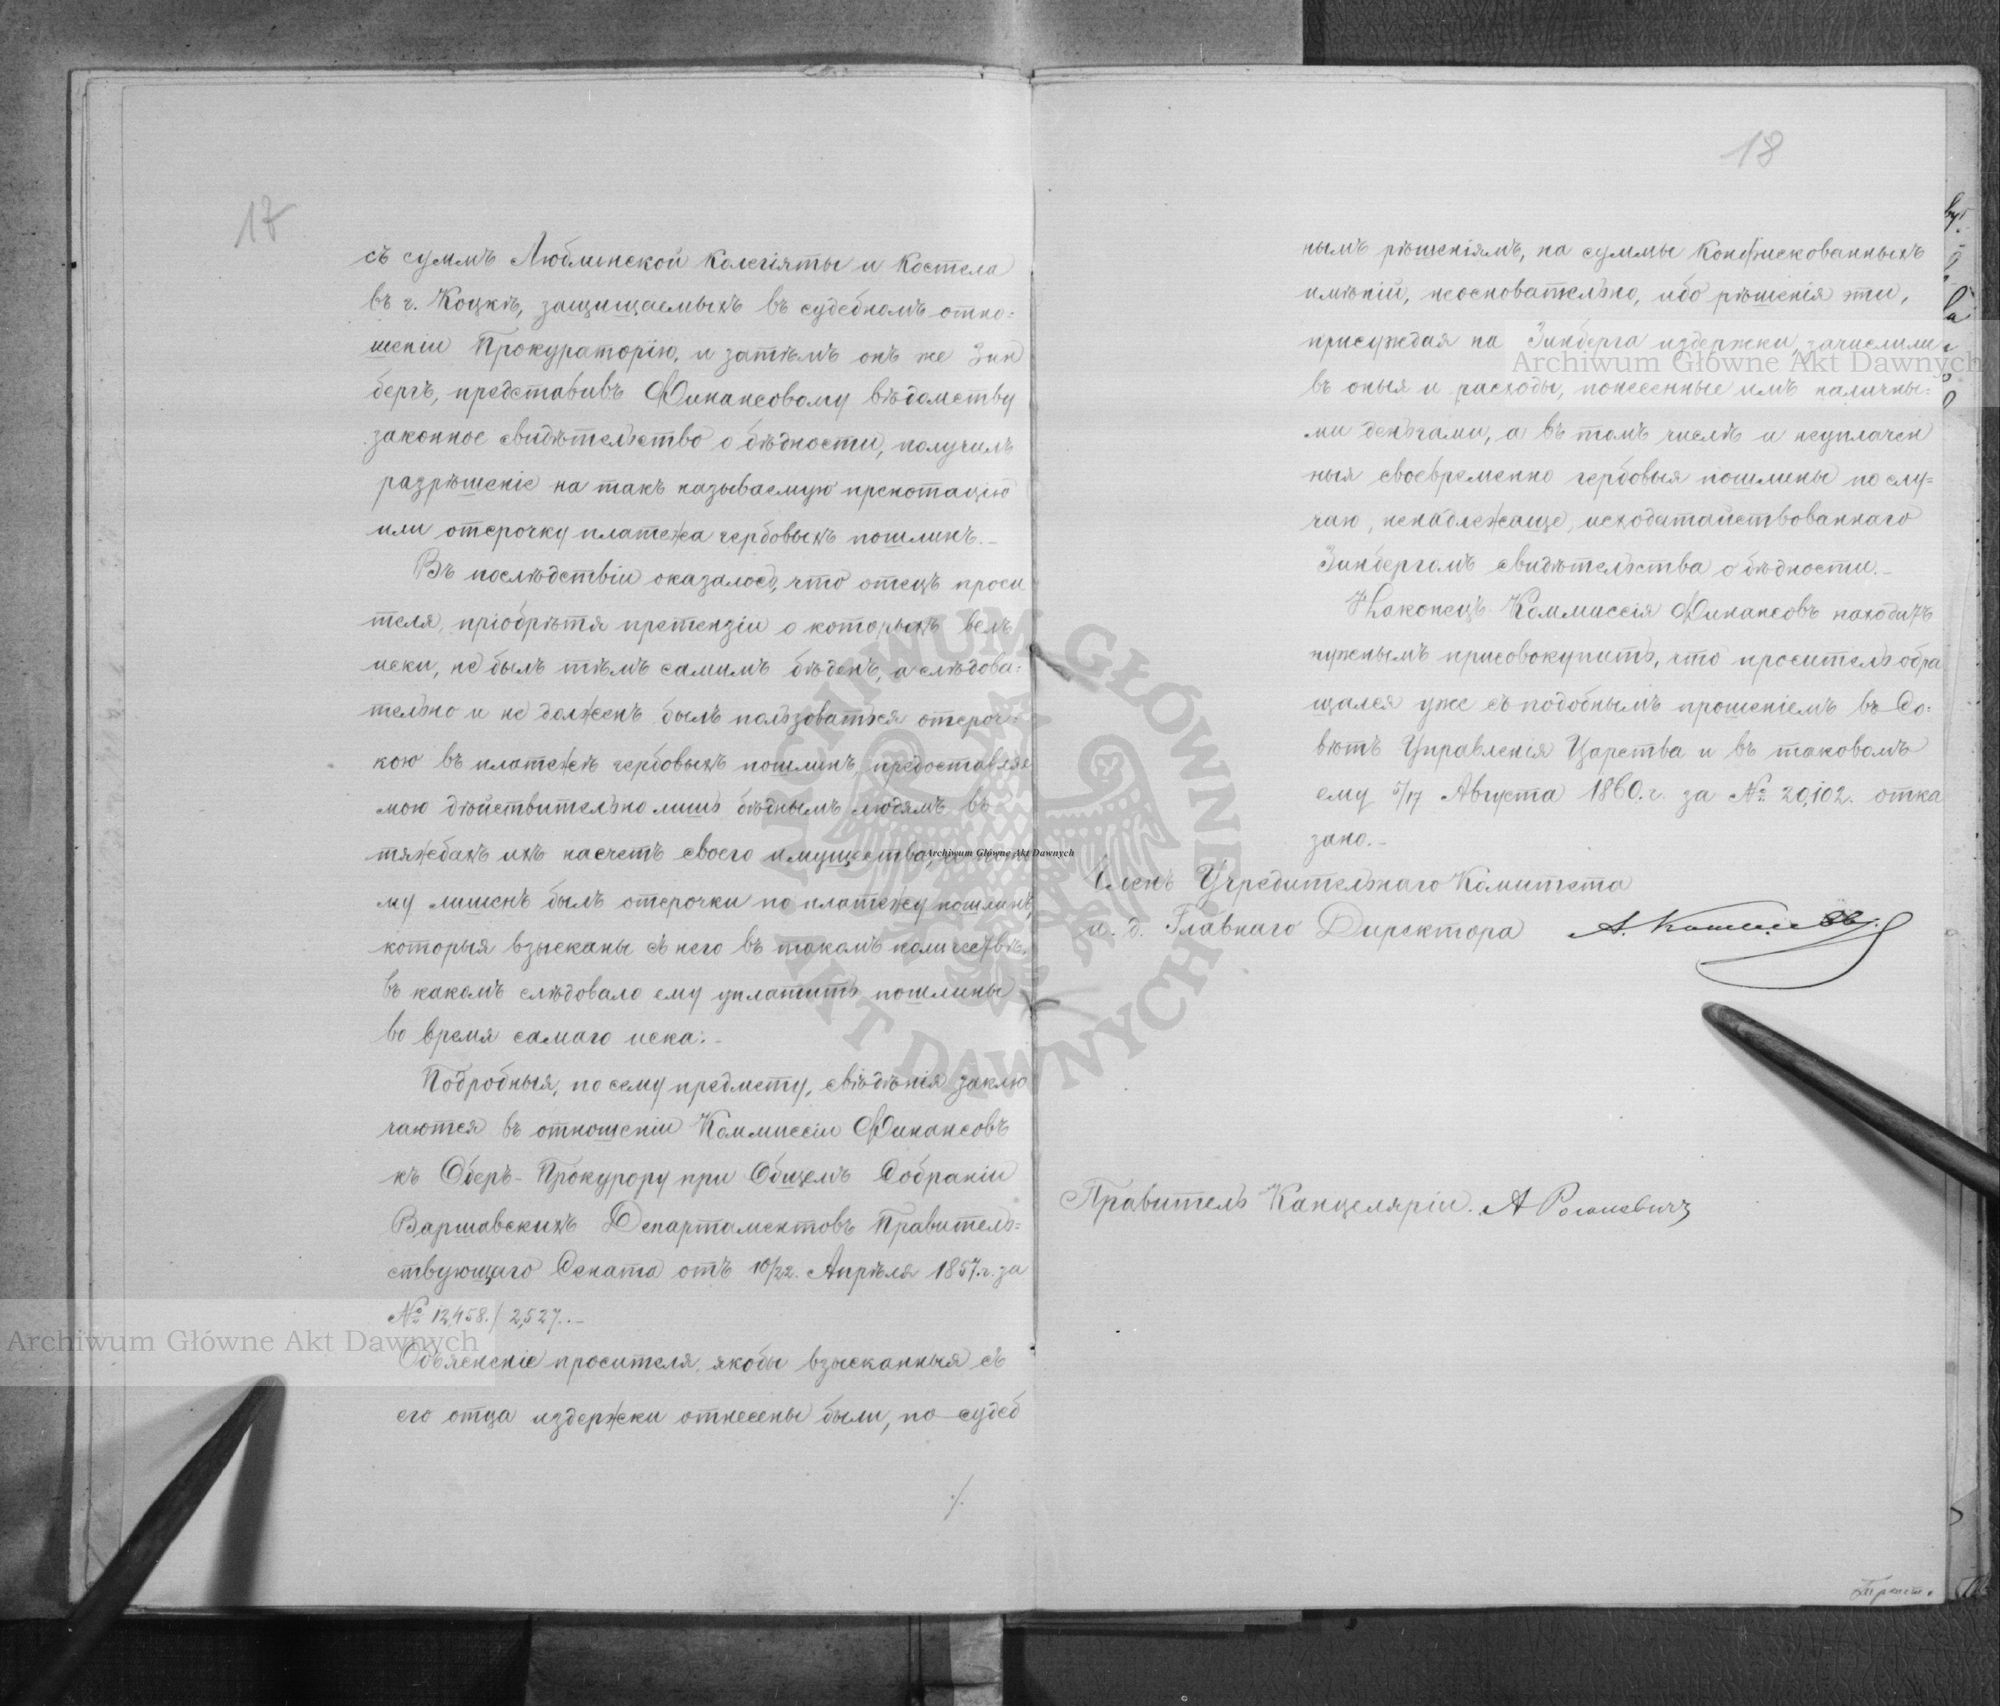 17
съ суммъ Люблинской Колегіяты и Костела
въ г. Коцкѣ, защищаемыхъ въ судебномъ отно=
шеніи Прокураторію, и затѣмъ онъ же Зин
бергъ, представивъ Финансовому вѣдомству
законное свидѣтельство о бѣдности, получилъ
разрѣшеніе на такъ называемую пренотацію
или отсрочку платежа гербовыхъ пошлинъ.–
Въ послѣдствіи оказалось, что отецъ проси
теля, пріобрѣтя претензіи о которыхъ велъ
иски, не былъ тѣмъ самимъ бѣденъ, а слѣдова=
тельно и не долженъ былъ пользоваться отсроч=
кою въ платежѣ гербовыхъ пошлинъ, предоставляе
мою дѣйствительно лишь бѣднымъ людямъ въ
тяжбахъ ихъ насчетъ своего имущества,
му лишенъ былъ отсрочки по платежу пошлинъ,
которыя взысканы съ него въ такомъ количествѣ,
въ какомъ слѣдовало ему уплатить пошлины
во время самаго иска.–
Подробныя, по сему предмету, свѣдѣнія заклю
чаются въ отношеніи Коммиссіи Финансовъ
къ Оберъ-Прокурору при Общемъ Собраніи
Варшавскихъ Департаментовъ Правитель=
ствующаго Сената отъ 10/22. Апрѣля 1857.г. за
№ 12,458./2,527..–
Объясненіе просителя, якобы взысканныя съ
его отца издержки отнесены были, по судеб
./.
18
нымъ рѣшеніямъ, на суммы конфискованныхъ
имѣній, неосновательно, ибо рѣшенія эти,
присуждая на Зинберга издержки, зачислили
въ оныя и расходы, понесенные имъ наличны=
ми деньгами, а въ томъ числѣ и неуплачен
ныя своевременно гербовыя пошлины по слу=
чаю, ненадлежаще, исходатайствованнаго
Зинбергомъ свидѣтельства о бѣдности.–
Наконецъ Коммиссія Финансовъ находитъ
нужнымъ присовокупить, что проситель обра
щался уже съ подобнымъ прошеніемъ въ Со=
вѣтъ Управленія Царства и въ таковомъ
ему 5/17 Августа 1860.г. за № 20,102. отка
зано.–
Членъ Учредительнаго Комитета
и. д. Главнаго Директора А. Кошелевъ.
Правитель Канцеляріи. А
Archiwum Główne Akt Dawnych
Archiwum Główne Akt Dawnych
Archiwum Główne Akt Dawnych
ARCHIWUM GŁÓWNE AKT DAWNYCH